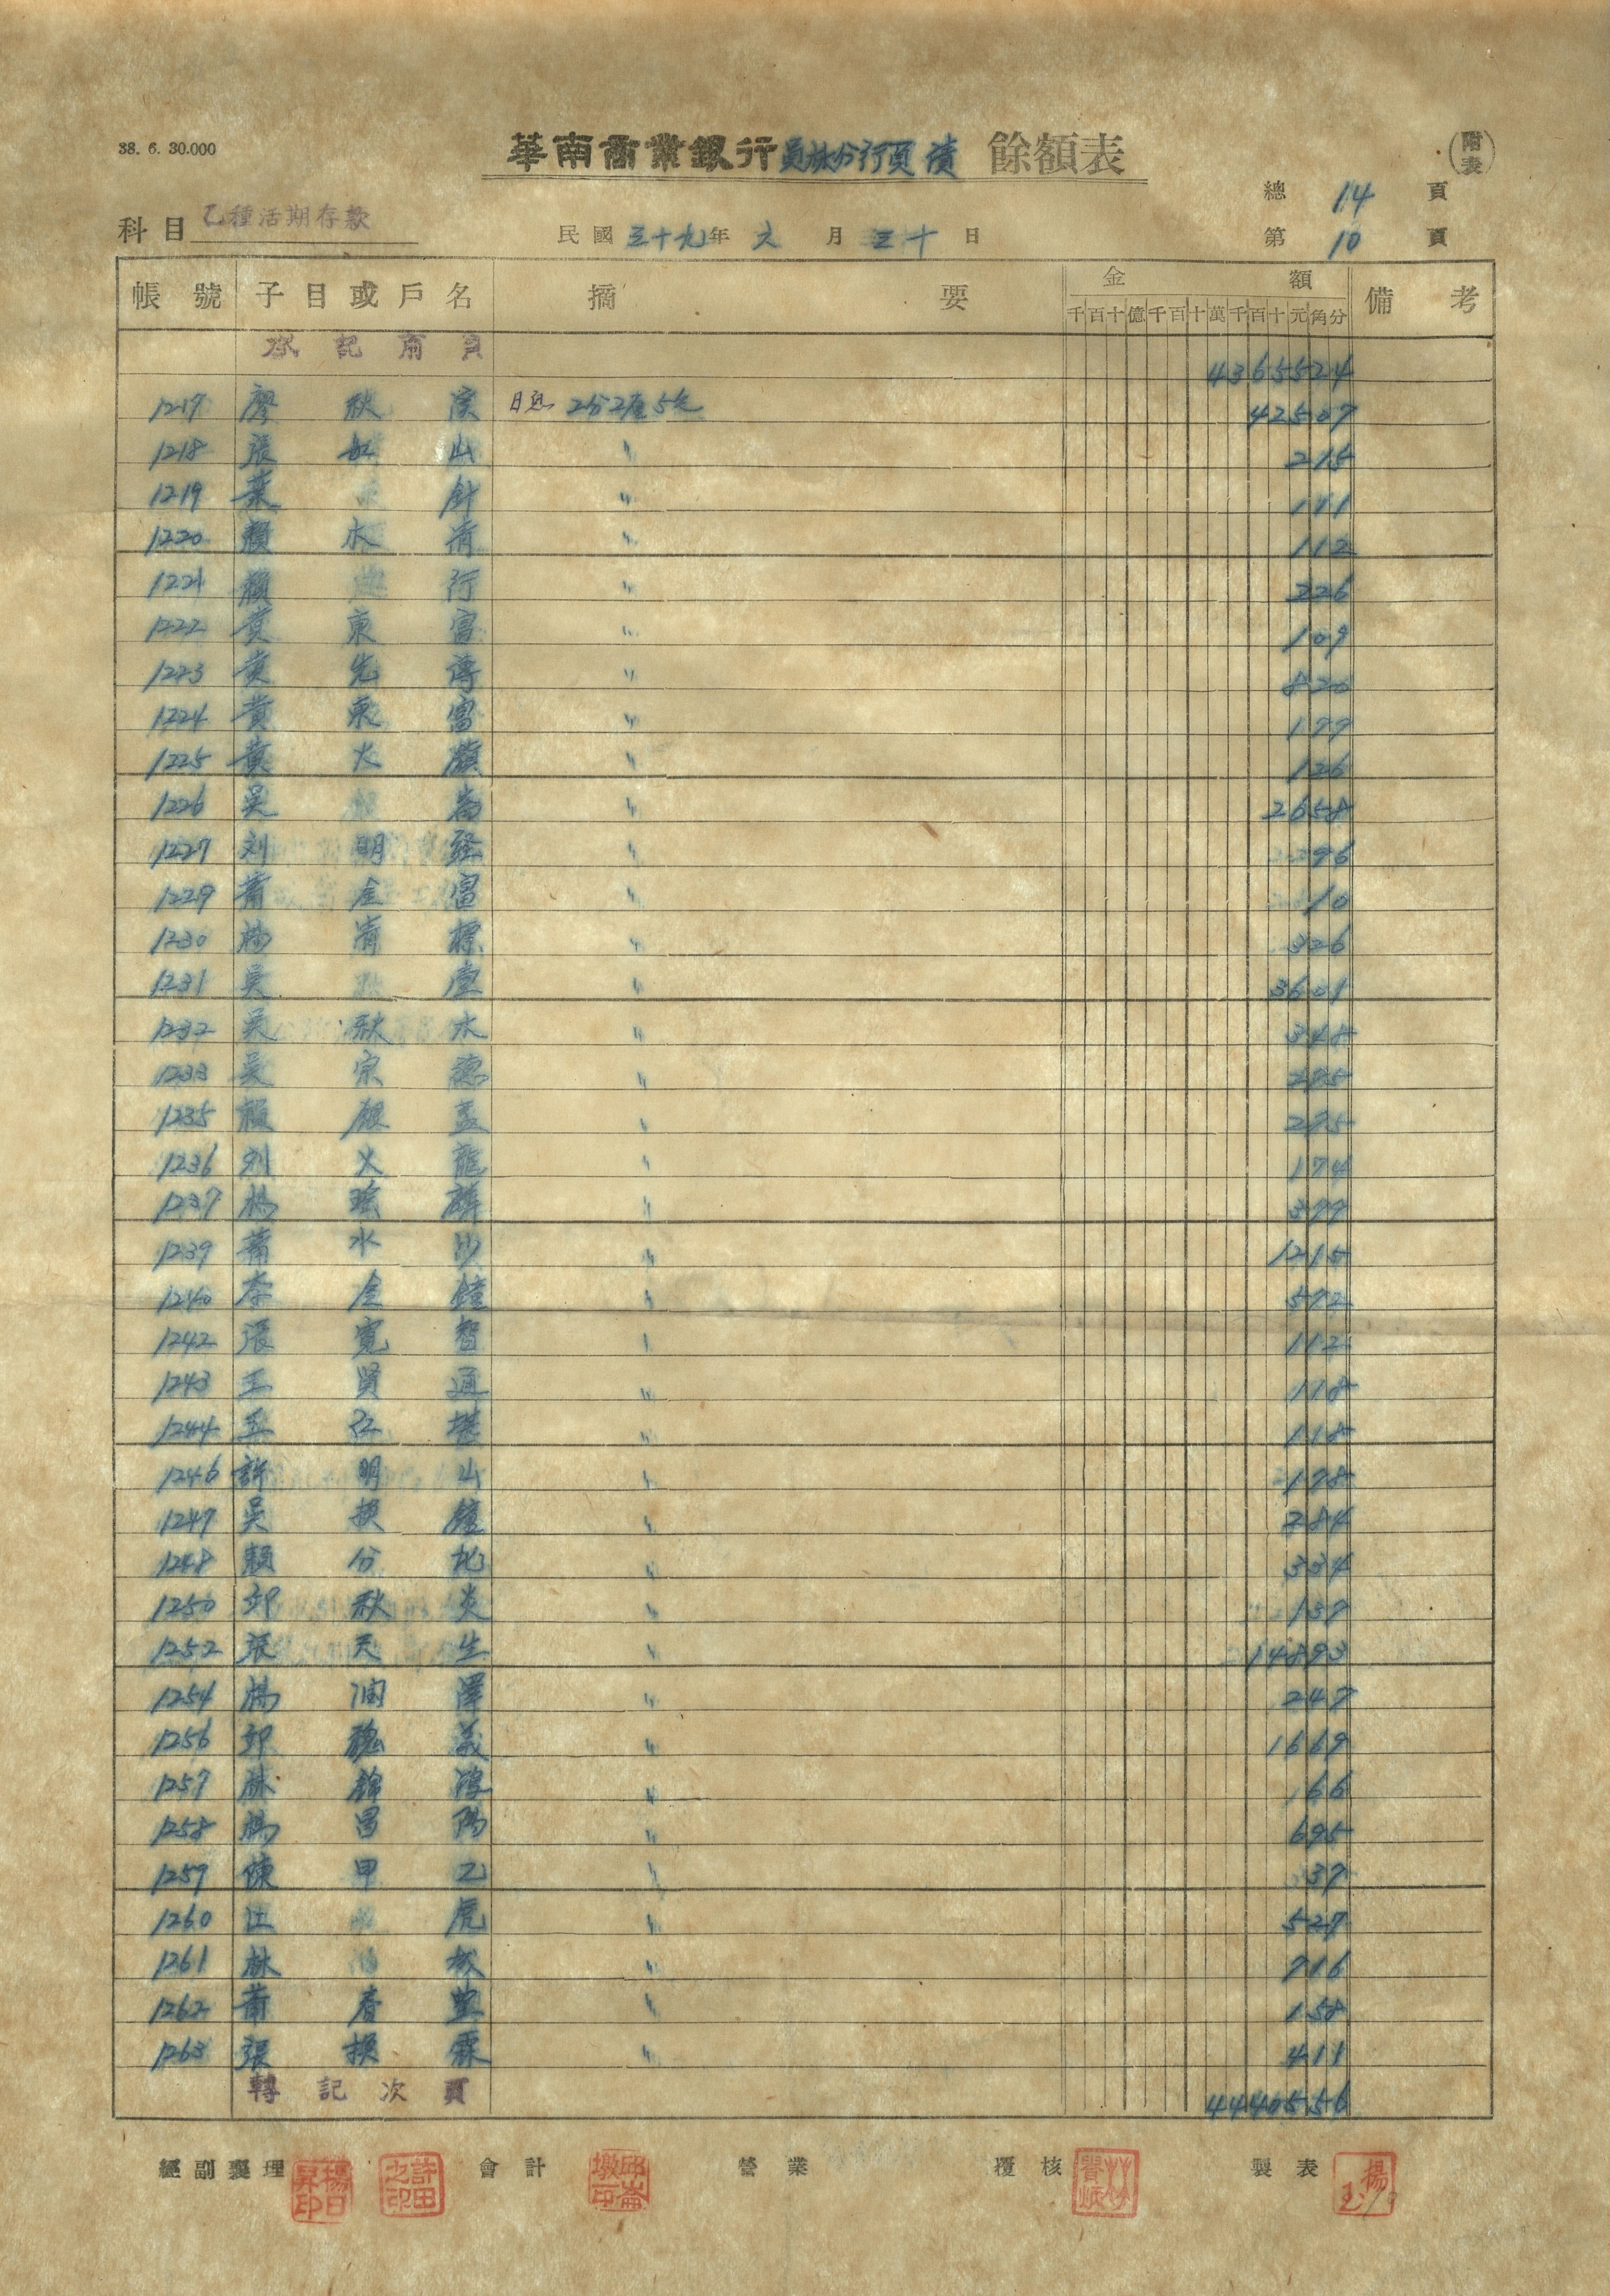 38. 6. 30.000
華南商業銀行員林分行負債 餘額表
(附表)
總 14 頁
科目 乙種活期存款
民國三十九年 六 月 三十 日
第 10 頁
帳號 子目或戶名 摘要 金額 備考
千百十億千百十萬千百十元角分
承記前頁 4365524
1217 廖秋 日息 2分2厘5毛 42507
1218 張 山 〃 215
1219 葉 針 〃 111
1220 賴水清 〃 112
1221 賴 行 〃 226
1222 黃東富 〃 109
1223 黃先傳 〃 820
1224 黃東富 〃 199
1225 黃火 〃 126
1226 吳 〃 2658
1227 刘明經 〃 96
1229 蕭金富 〃 10
1230 楊清標 〃 326
1231 吳 〃 3601
1232 吳秋水 〃 348
1233 吳宗德 〃 295
1235 賴銀孟 〃 295
1236 刘火龍 〃 174
1237 楊瑤麟 〃 399
1239 蕭水沙 〃 1215
1240 李金鐘 〃 592
1242 張寬智 〃 112
1243 王賢通 〃 118
1244 〃 118
1246 許明山 〃 198
1247 吳換鐘 〃 284
1248 賴分地 〃 334
1250 邱秋炎 〃 137
1252 張天生 〃 14893
1254 楊潤澤 〃 247
1256 邱聰義 〃 1669
1257 林錦 〃 66
1258 楊昌陽 〃 695
1259 陳甲乙 〃 37
1260 江 虎 〃 527
1261 林 城 〃 716
1262 蕭春堂 〃 158
1263 張換霖 〃 411
轉記次頁 4440556
經副襄理 楊日昇印 許田之印 會計 邱崙墩印 營業 覆核 製表 楊